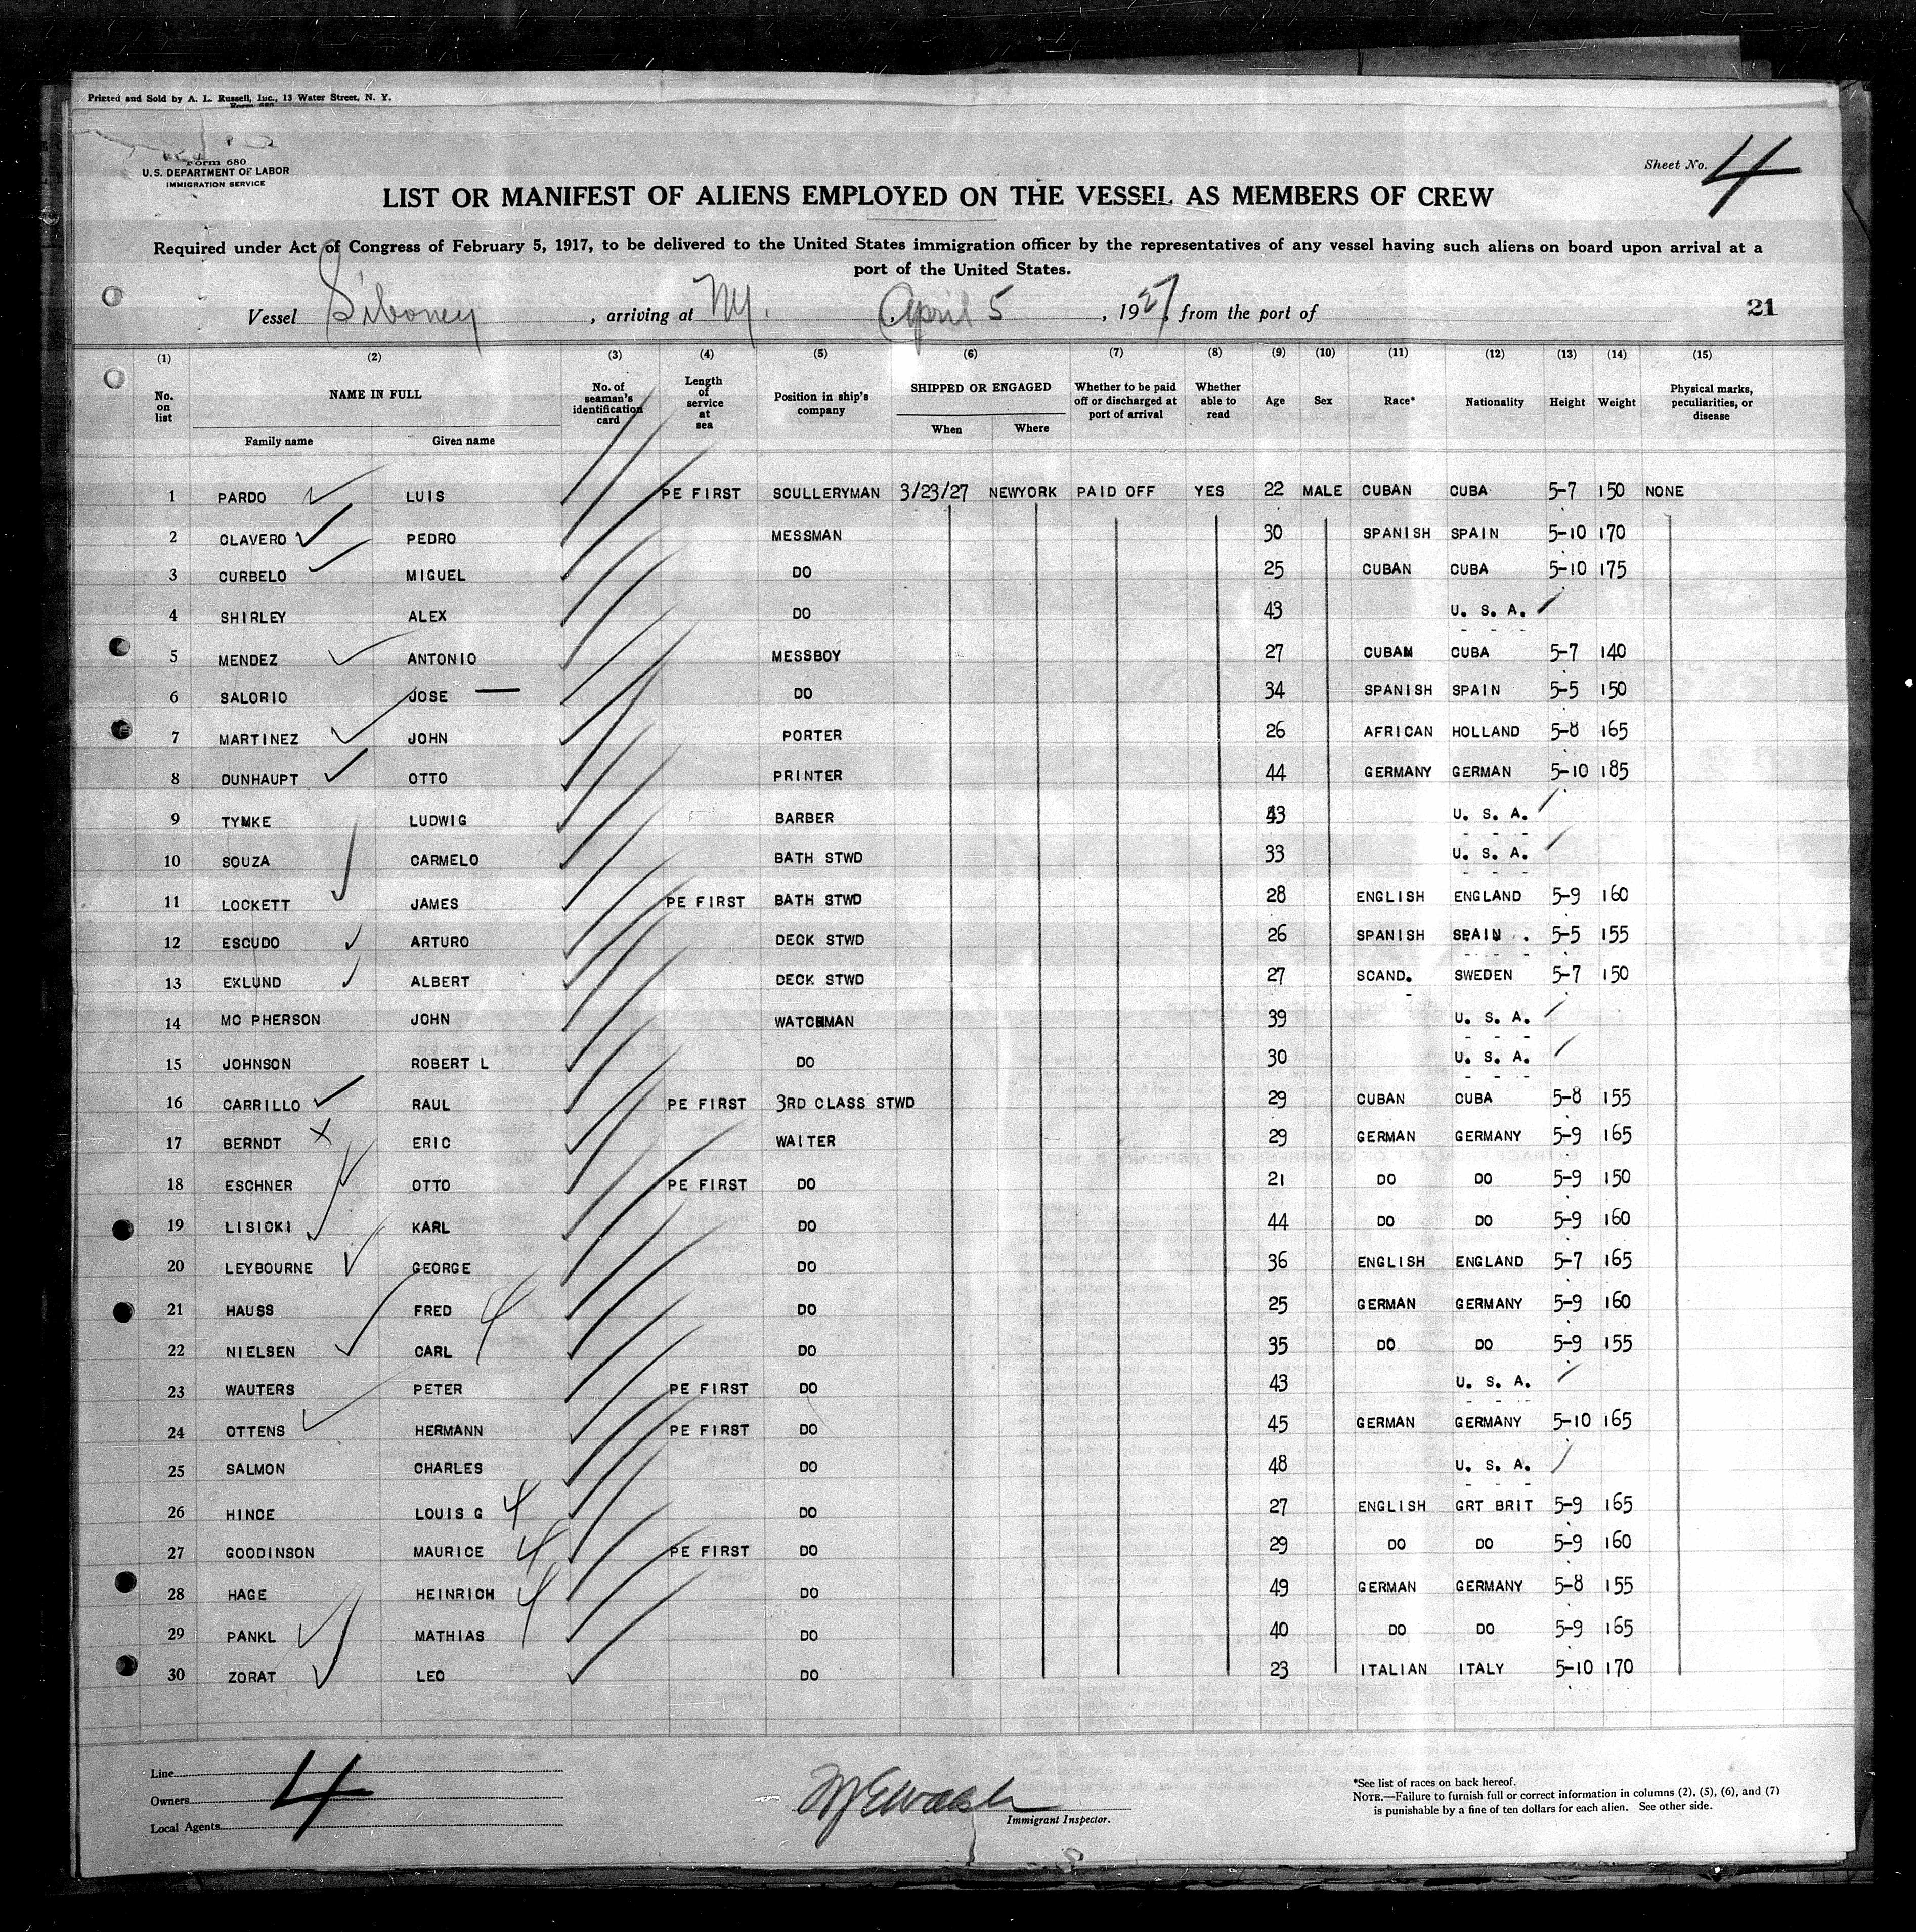 Printed and Sold by A. L. Russell, Inc., 13 Water Street, N. Y.
Form 680
U.S. DEPARTMENT OF LABOR
IMMIGRATION SERVICE
Sheet No. 4
LIST OR MANIFEST OF ALIENS EMPLOYED ON THE VESSEL AS MEMBERS OF CREW
Required under Act of Congress of February 5, 1917, to be delivered to the United States immigration officer by the representatives of any vessel having such aliens on board upon arrival at a
port of the United States.
Vessel Siboney, arriving at NY. April 5, 1927, from the port of
21
(1) (2) (3) (4) (5) (6) (7) (8) (9) (10) (11) (12) (13) (14) (15)
No. on list NAME IN FULL No. of seaman's identification card Length of service at sea Position in ship's company SHIPPED OR ENGAGED Whether to be paid off or discharged at port of arrival Whether able to read Age Sex Race* Nationality Height Weight Physical marks, peculiarities, or disease
Family name Given name When Where
1 PARDO LUIS PE FIRST SCULLERYMAN 3/23/27 NEWYORK PAID OFF YES 22 MALE CUBAN CUBA 5-7 150 NONE
2 CLAVERO PEDRO MESSMAN 30 SPANISH SPAIN 5-10 170
3 CURBELO MIGUEL DO 25 CUBAN CUBA 5-10 175
4 SHIRLEY ALEX DO 43 U. S. A.
5 MENDEZ ANTONIO MESSBOY 27 CUBAM CUBA 5-7 140
6 SALORIO JOSE DO 34 SPANISH SPAIN 5-5 150
7 MARTINEZ JOHN PORTER 26 AFRICAN HOLLAND 5-8 165
8 DUNHAUPT OTTO PRINTER 44 GERMANY GERMAN 5-10 185
9 TYMKE LUDWIG BARBER 43 U. S. A.
10 SOUZA CARMELO BATH STWD 33 U. S. A.
11 LOCKETT JAMES PE FIRST BATH STWD 28 ENGLISH ENGLAND 5-9 160
12 ESCUDO ARTURO DECK STWD 26 SPANISH SPAIN 5-5 155
13 EKLUND ALBERT DECK STWD 27 SCAND. SWEDEN 5-7 150
14 MC PHERSON JOHN WATCHMAN 39 U. S. A.
15 JOHNSON ROBERT L DO 30 U. S. A.
16 CARRILLO RAUL PE FIRST 3RD CLASS STWD 29 CUBAN CUBA 5-8 155
17 BERNDT ERIC WAITER 29 GERMAN GERMANY 5-9 165
18 ESCHNER OTTO PE FIRST DO 21 DO DO 5-9 150
19 LISICKI KARL DO 44 DO DO 5-9 160
20 LEYBOURNE GEORGE DO 36 ENGLISH ENGLAND 5-7 165
21 HAUSS FRED 4 DO 25 GERMAN GERMANY 5-9 160
22 NIELSEN CARL DO 35 DO DO 5-9 155
23 WAUTERS PETER PE FIRST DO 43 U. S. A.
24 OTTENS HERMANN PE FIRST DO 45 GERMAN GERMANY 5-10 165
25 SALMON CHARLES DO 48 U. S. A.
26 HINCE LOUIS G 4 DO 27 ENGLISH GRT BRIT 5-9 165
27 GOODINSON MAURICE 4 PE FIRST DO 29 DO DO 5-9 160
28 HAGE HEINRICH 4 DO 49 GERMAN GERMANY 5-8 155
29 PANKL MATHIAS DO 40 DO DO 5-9 165
30 ZORAT LEO DO 23 ITALIAN ITALY 5-10 170
Line
Owners 4
Local Agents
Immigrant Inspector.
*See list of races on back hereof.
NOTE.—Failure to furnish full or correct information in columns (2), (5), (6), and (7)
is punishable by a fine of ten dollars for each alien. See other side.